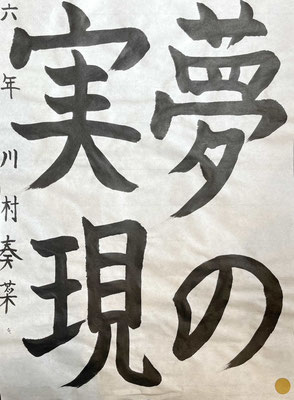 夢の
実現
六年 川村奏菜